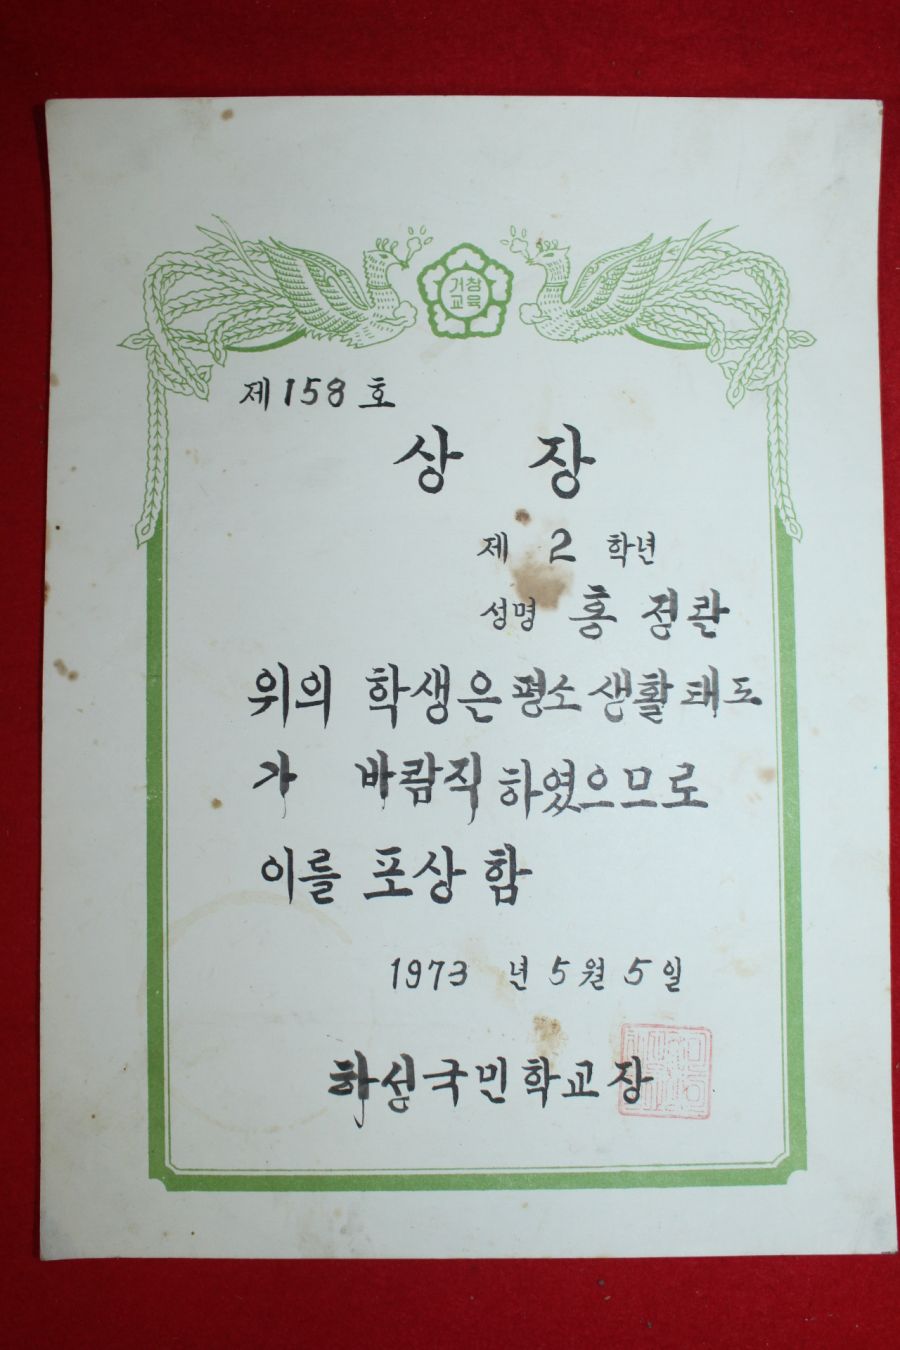 거창
교육
제 158 호
상 장
제 2 학년
성명 홍 정관
위의 학생은 평소 생활태도
가 바람직 하였으므로
이를 포상 함
1973 년 5 월 5 일
하성국민학교장